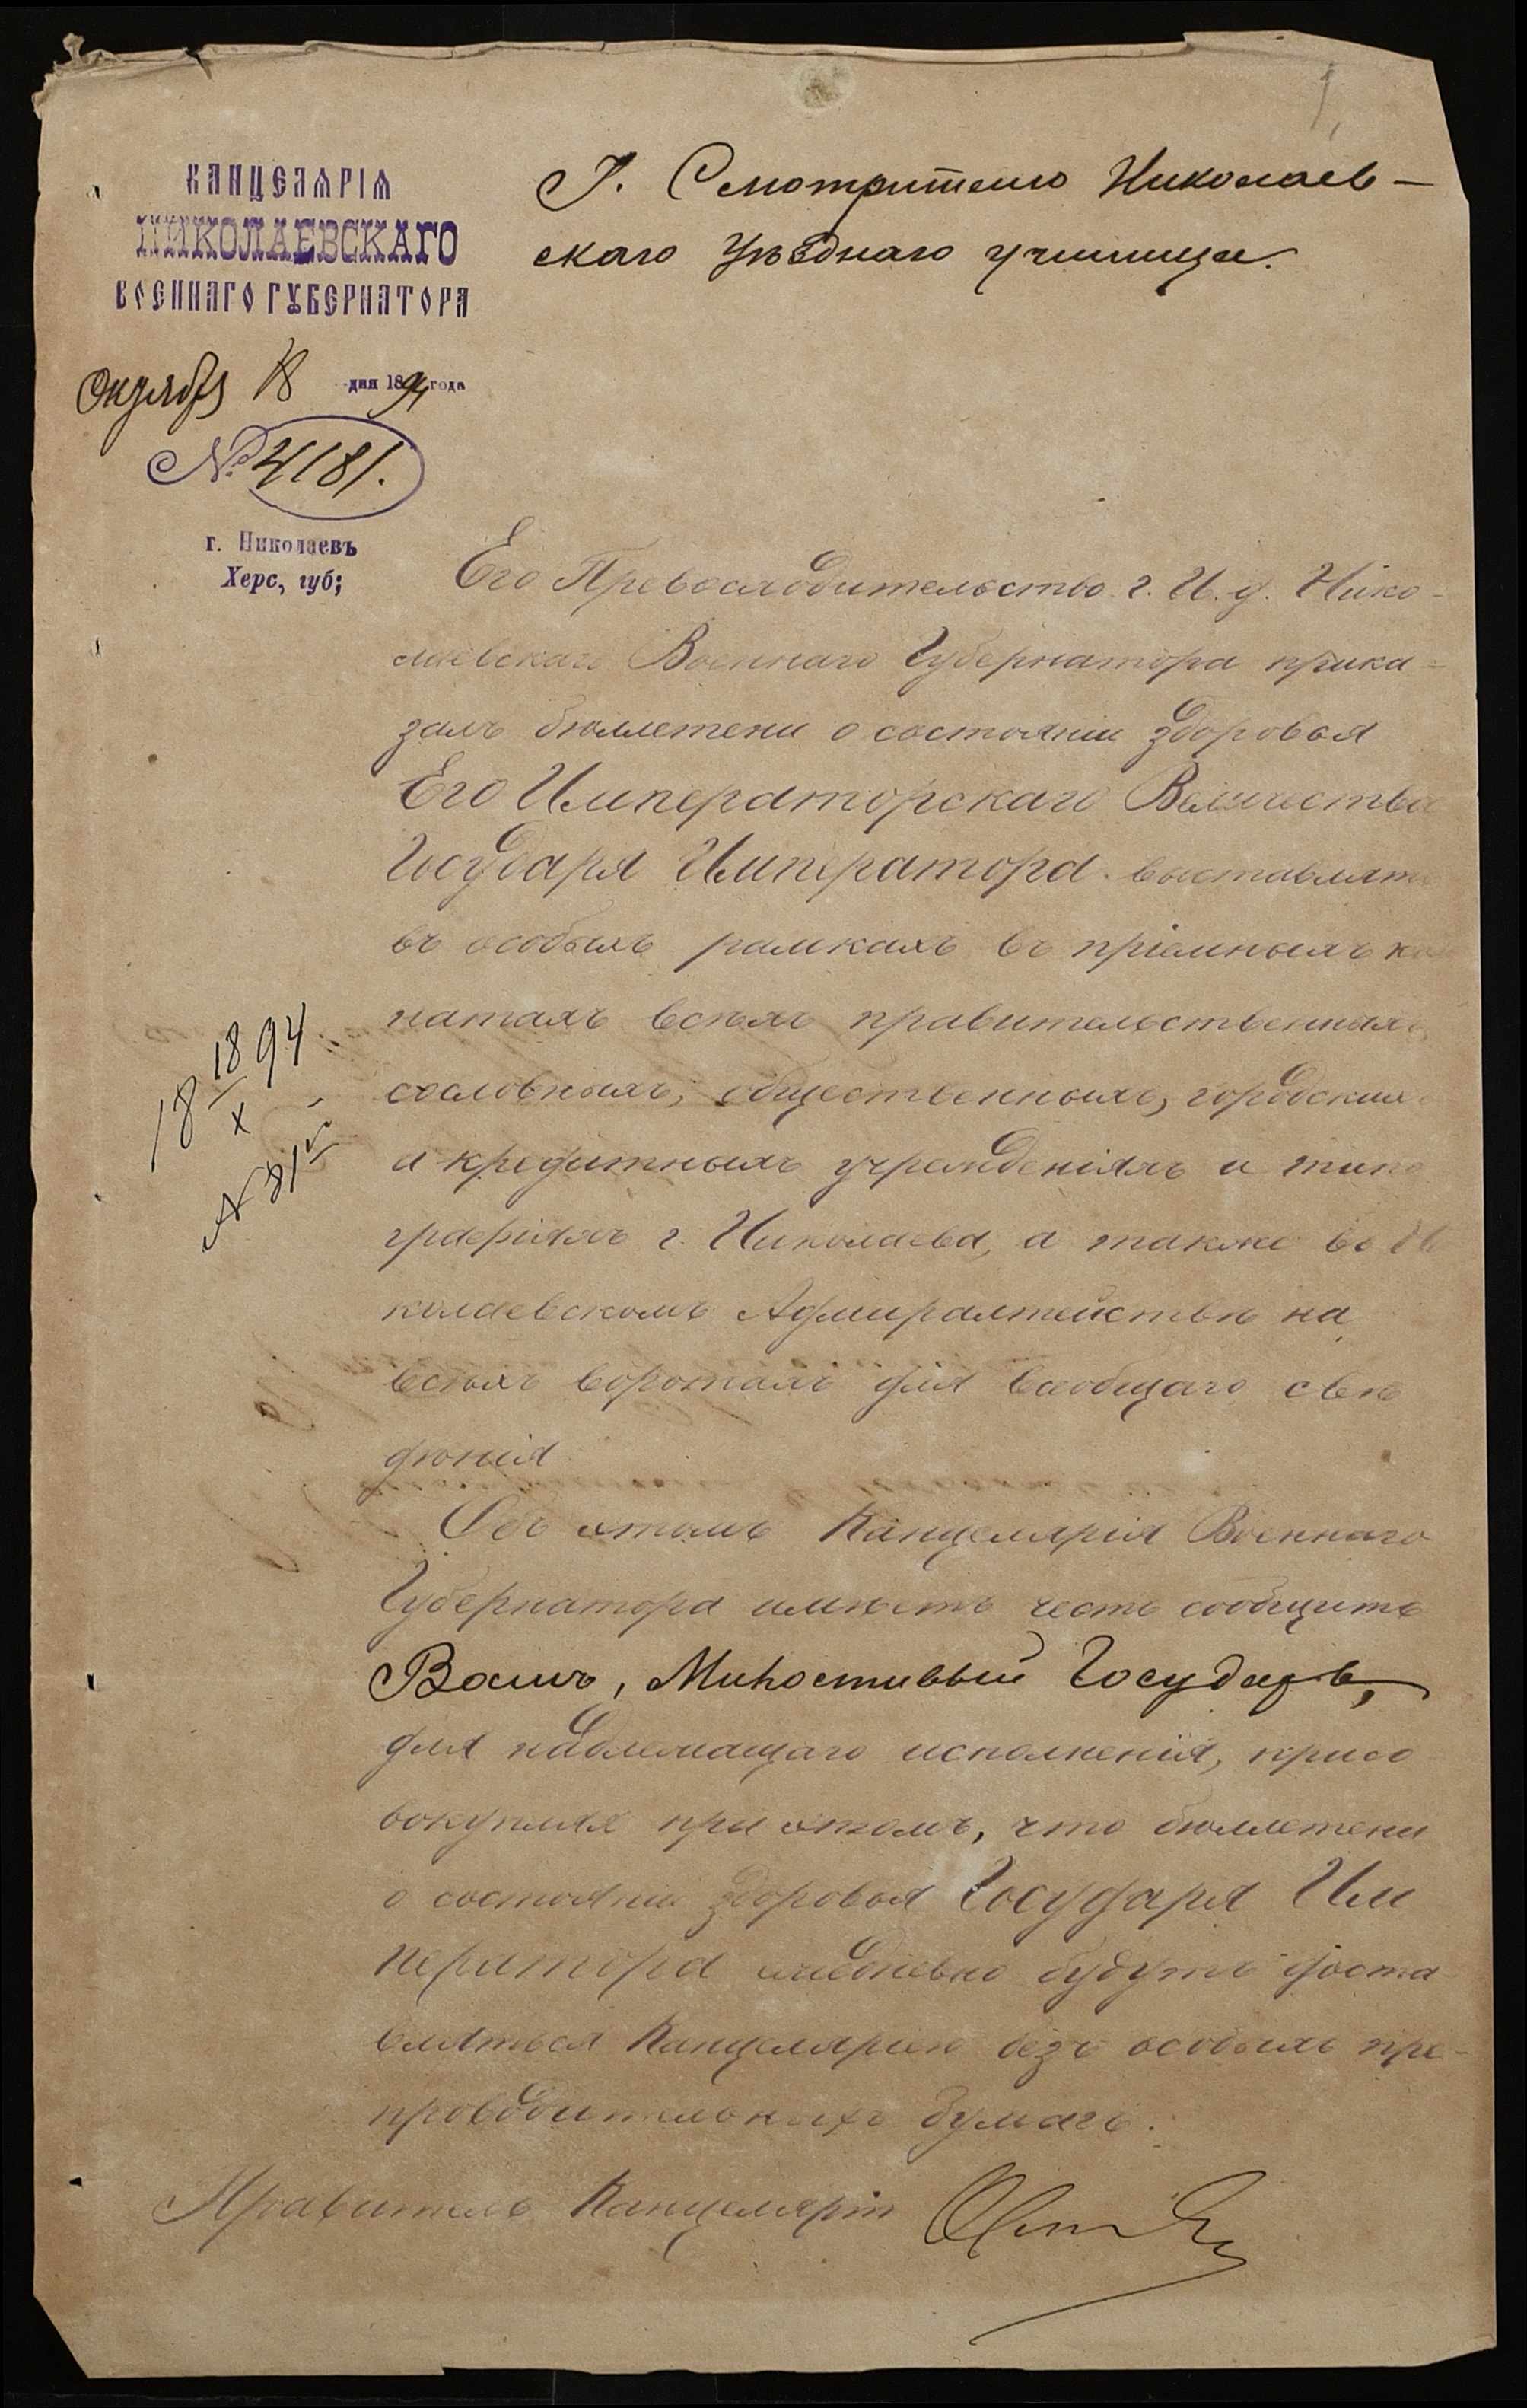 1,
КАНЦЕЛЯРІЯ
НИКОЛАЕВСКАГО
ВОЕННАГО ГУБЕРНАТОРА
Октября 18 дня 1894 года
№ 4181.
г. Николаевъ
Херс, губ;
Г. Смотрителю Николаев-
скаго Уѣзднаго училища.
Его Превосходительство г. И. д. Нико-
лаевскаго Военнаго Губернатора прика-
залъ бюллетени о состояніи здоровья
Его Императорскаго Величества
Государя Императора выставлять
въ особыхъ рамкахъ въ пріемныхъ ком
натахъ всѣхъ правительственныхъ,
сословныхъ, общественныхъ, городскихъ
и кредитныхъ учрежденіяхъ и типо
графіяхъ г. Николаева, а также въ Ни
колаевскомъ Адмиралтействѣ на
всѣхъ воротахъ для всеобщаго свѣ
дѣнія
18 18/X 94
№ 81
Объ этомъ Канцелярія Военнаго
Губернатора имѣетъ честь сообщить
Вамъ, Милостивый Государь,
для надлежащаго исполненія, присо
вокупляя при этомъ, что бюллетени
о состояніи здоровья Государя Им
ператора ежедневно будутъ доста
вляться Канцеляріею безъ особыхъ пре-
проводительныхъ бумагъ.
Правитель Канцеляріи